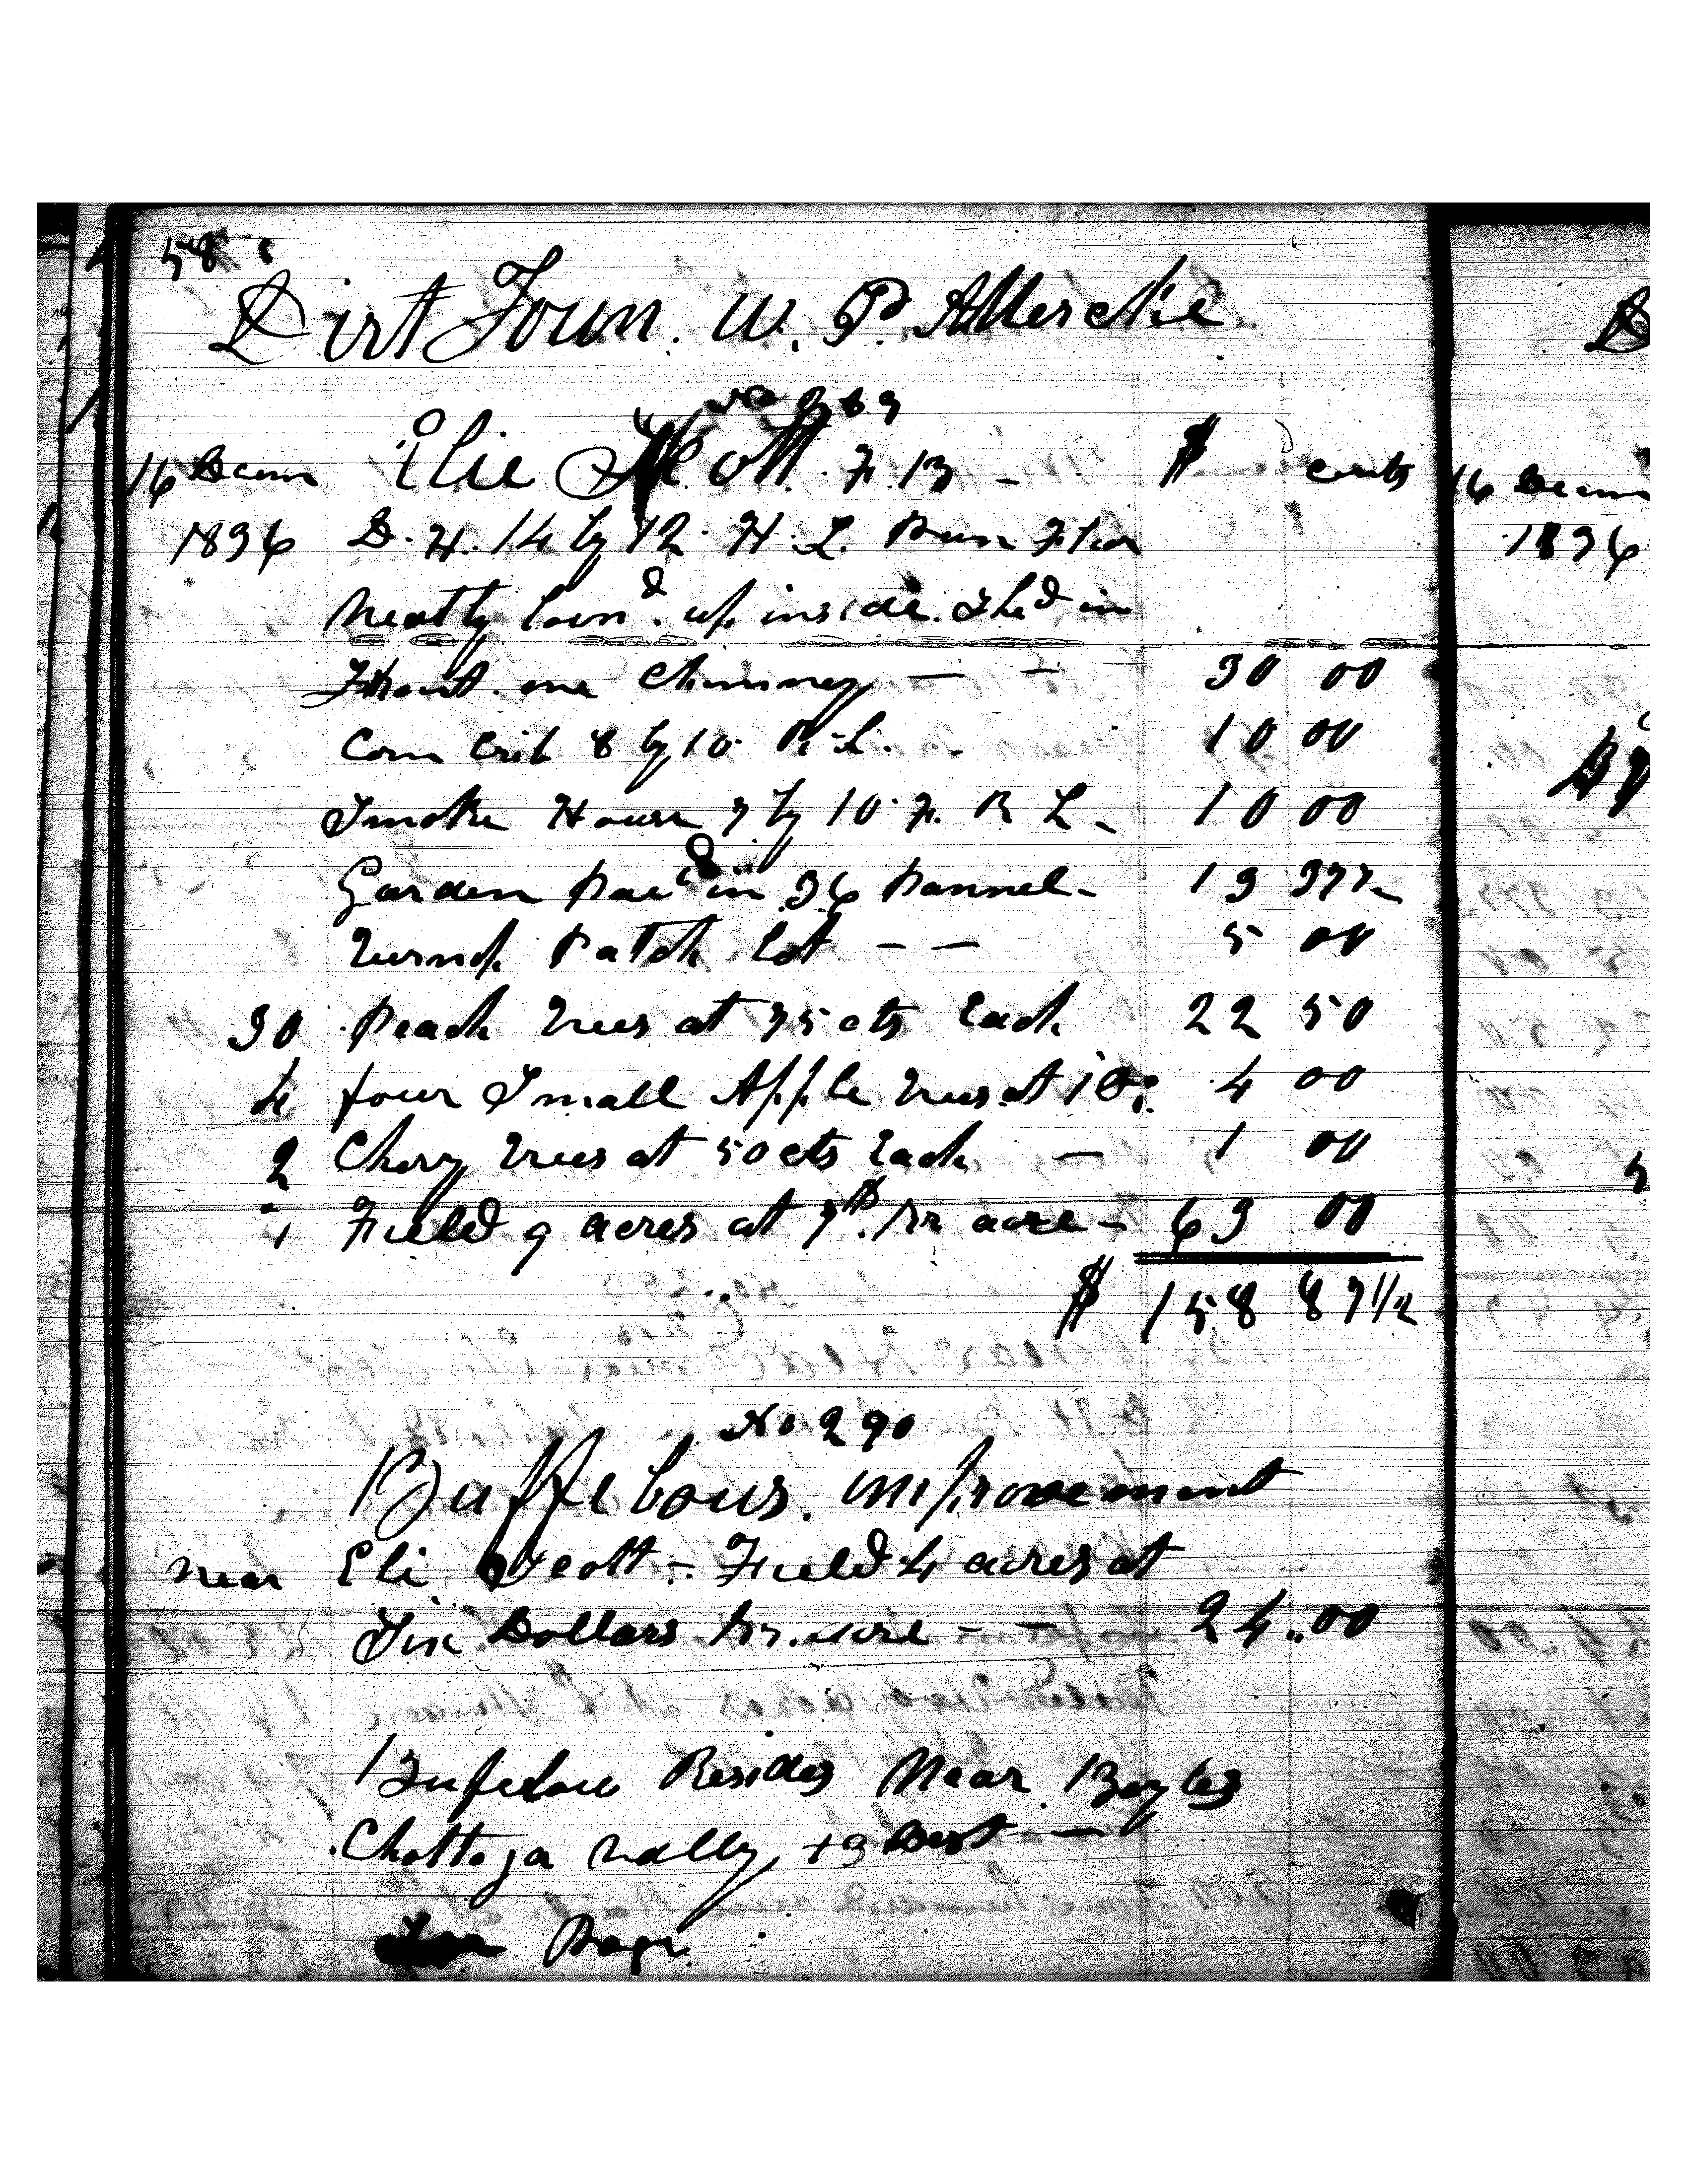 58
Dirt Town. W. P.
No 289
16 Decem Elie Scott. F. B - $ cents
1836 D. H. 14 by 12. H. L. Pun Floor
Neatly Coverd. up inside. Shed in
Front. one Chimney — — 30 00
Corn Crib 8 by 10. R. L. 10 00
Smoke House 7 by 10. F. R L - 10 00
Garden in 36 Pannel - 13 37½
Turnip Patch Lot — — 5 00
30 Peach Trees at 75 cts Each 22 50
4 four Small Apple Trees at 4 00
2 Chery Trees at 50 cts Each — 1 00
Field 9 acres at 7$. pr acre - 63 00
$ 158 87½
No 290
improvement
near Eli Scott - Field 4 acres at
Six Dollars pr. acre - - 24..00
Resides Near
Vally
Page